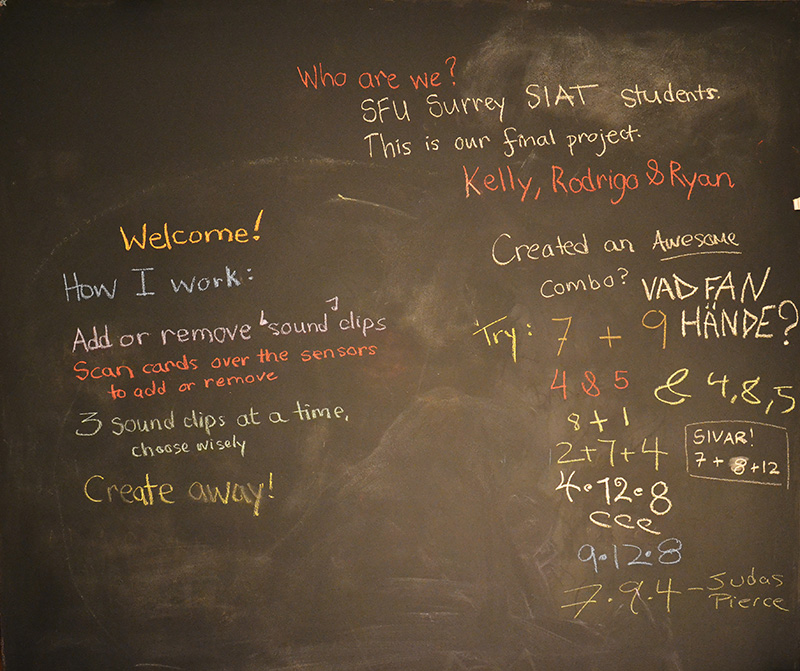 Who are we?
SFU Surrey SIAT students.
This is our final project.
Kelly, Rodrigo & Ryan
Welcome!
How I work:
Add or remove "sound" clips
Scan cards over the sensors
to add or remove
3 sound clips at a time,
choose wisely
Create away!
Created an Awesome
combo?
VAD FAN
HÄNDE?
Try: 7 + 9
4 & 5
& 4,8,5
8 + 1
2+7+4
SIVAR!
7 + 8 +12
4.12.8
CCC
9.12.8
7.9.4 - Judas
Pierce